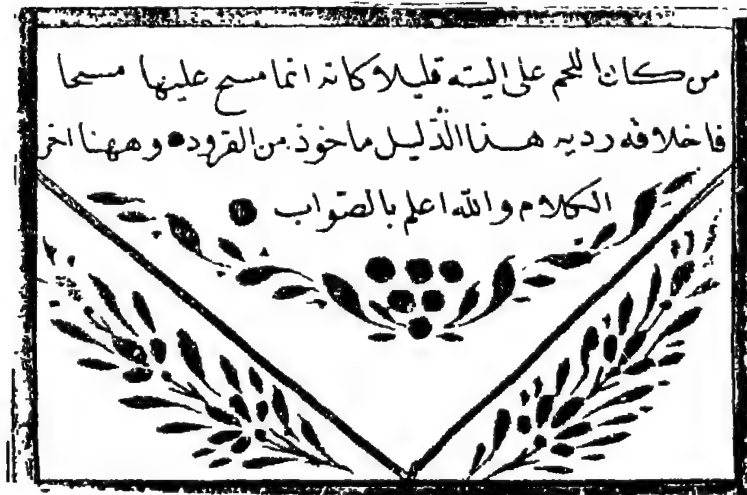 من كان اللحم على اليته قليلا وكانه انما مسح عليها مسحا
فاخلاقه رديه هذا الدليل ماخوذ من القرود • وههنا اخر
الكلام والله اعلم بالصواب •